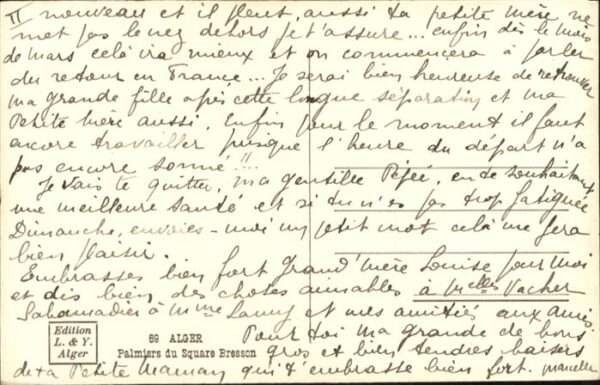 II nouveau et il pleut, aussi ta petite mère ne
met pas le nez dehors je t'assure... enfin dès le mois
de mars celà ira mieux et on commencera à parler
du retour en France... Je serai bien heureuse de retrouver
ma grande fille après cette longue séparation et ma
Petite Mère aussi. Enfin pour le moment il faut
encore travailler puisque l'heure du départ n'a
pas encore sonné!!..
Je vais te quitter, ma gentille en te souhaitant
une meilleure santé et si tu n'es pas trop fatiguée
Dimanche, envoies-moi un petit mot celà me fera
bien plaisir.
Embrasses bien fort Grand'mère Louise pour moi
et dis bien des choses aimables à Melles Vacher
à Mme et mes amitiés aux amis.
Pour toi ma grande de bons
gros et bien tendres baisers
de ta Petite Maman qui t'embrasse bien fort. Marcelle
Edition
L. & Y.
Alger
69 ALGER
Palmiers du Square Bresson